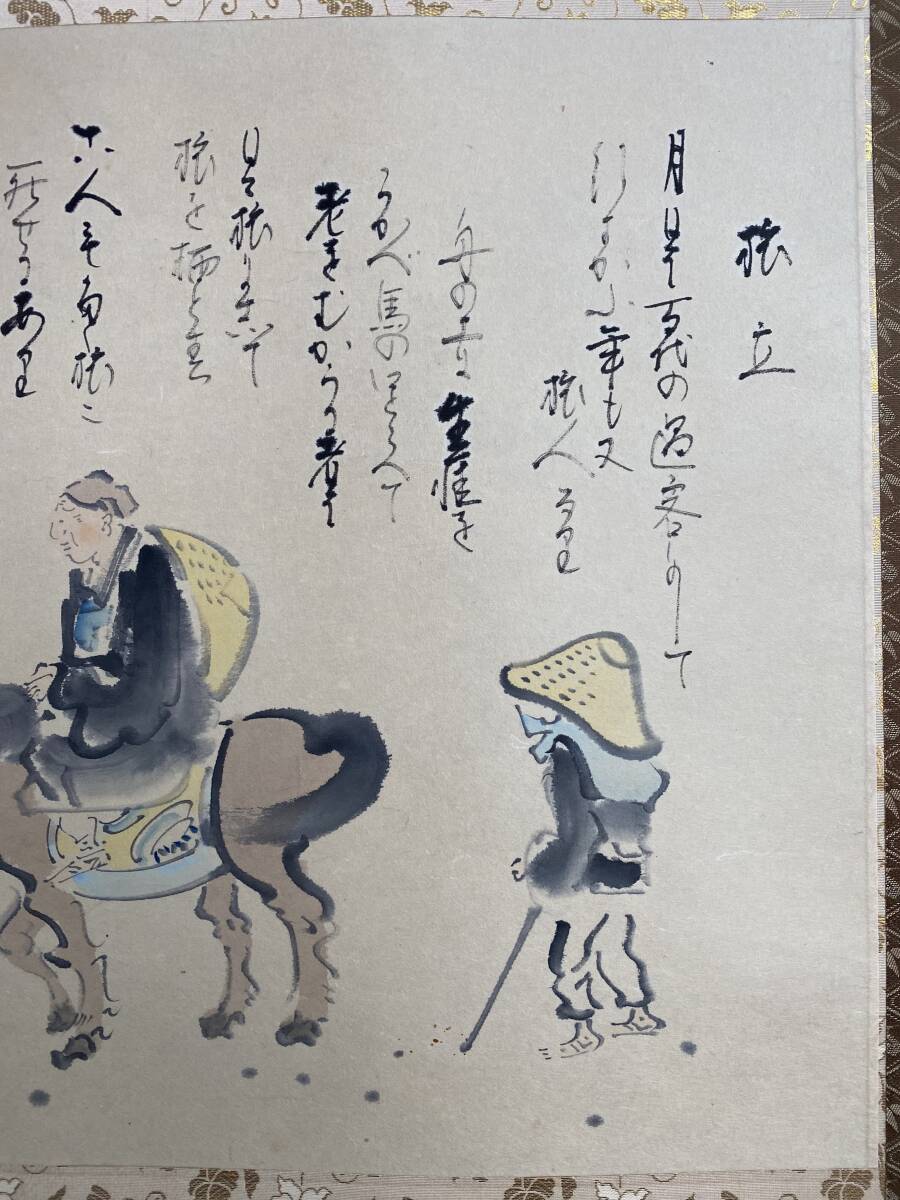 旅立
月日ハ百代の過客にして
行かふ年も又
旅人なり
舟の上に生涯を
うかべ馬の口とらへて
老をむかふる者ハ
日々旅にして
旅を栖とす
古人も多く旅に
死せるあり